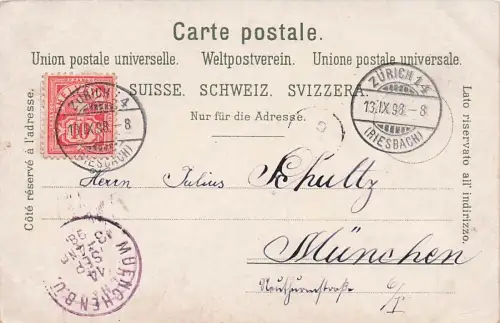 Carte postale.
Union postale universelle. Weltpostverein. Unione postale universale.
SUISSE. SCHWEIZ. SVIZZERA.
Nur für die Adresse.
Côté réservé à l'adresse.
Lato riservato all' indirizzo.
ZÜRICH 14
13.IX.98.-8
(RIESBACH)
10
ZÜRICH 14
IX.98.-8
(RIESBACH)
Herrn Julius Schultz
München
MUENCHEN B.U.
14
SEP
98